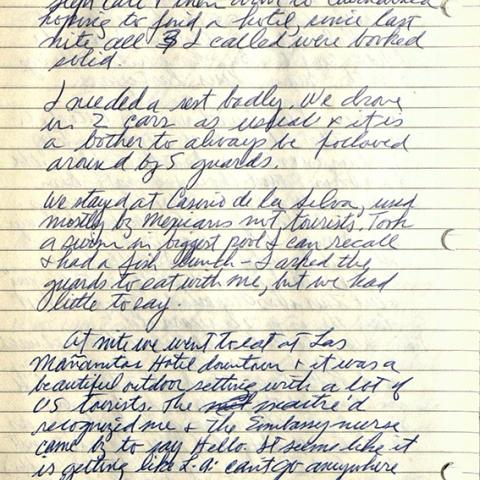 hoping to find a hotel, since last
nite all 3 I called were booked
solid.
I needed a rest badly. We drove
in 2 cars as usual & it is
a bother to always be followed
around by 5 guards.
We stayed at Casino de la Selva, used
mostly by Mexicans not tourists. Took
a swim in biggest pool I can recall
& had a fish lunch - I asked the
guards to eat with me, but we had
little to say.
At nite we went to eat at Las
Mañanitas Hotel downtown & it was a
beautiful outdoor setting with a lot of
US tourists. The maitre'd
recognized me & the Embassy nurse
came by to say Hello. It seems like it
is getting like L.A. can't go anywhere